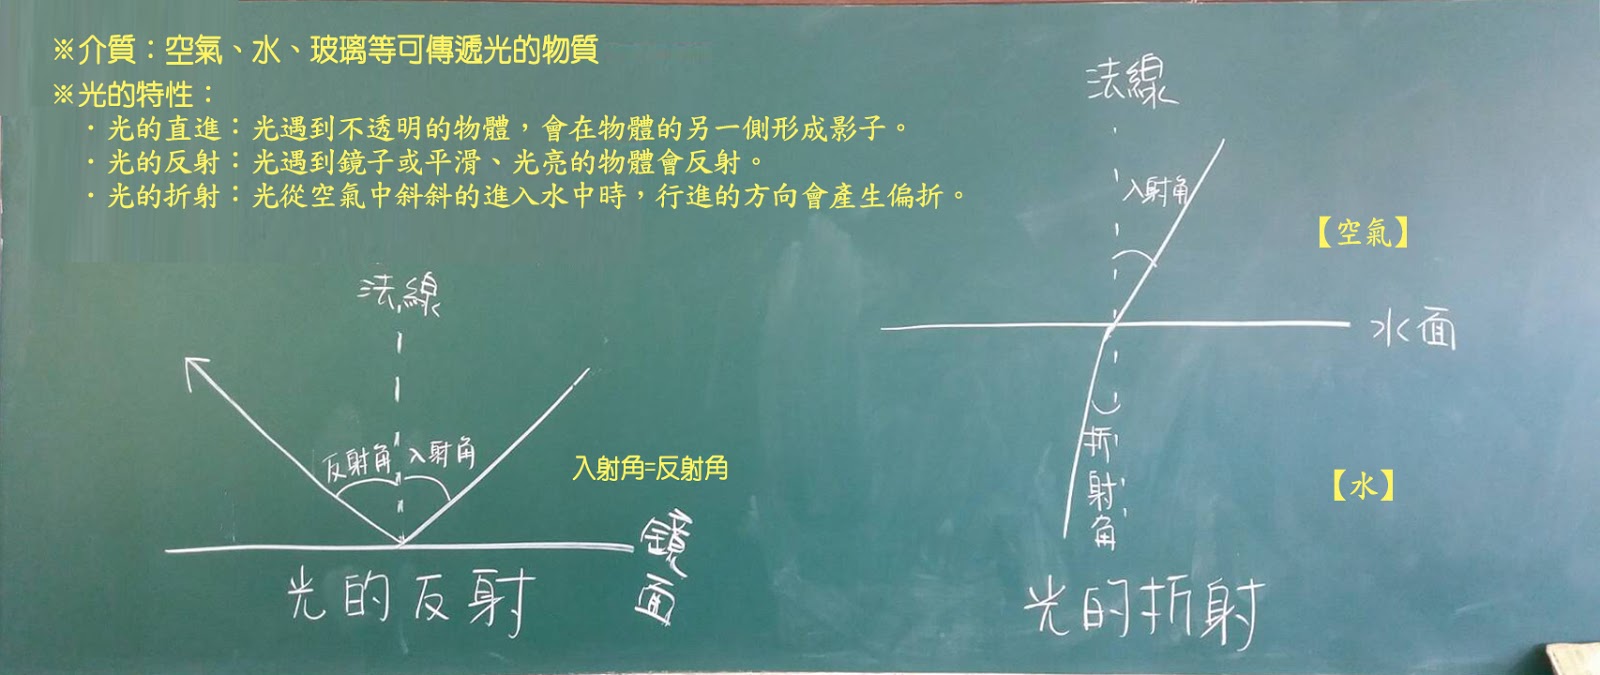 ※介質：空氣、水、玻璃等可傳遞光的物質
※光的特性：
．光的直進：光遇到不透明的物體，會在物體的另一側形成影子。
．光的反射：光遇到鏡子或平滑、光亮的物體會反射。
．光的折射：光從空氣中斜斜的進入水中時，行進的方向會產生偏折。
法線
反射角 入射角
入射角=反射角
鏡面
光的反射
法線
入射角
【空氣】
水面
折射角
【水】
光的折射